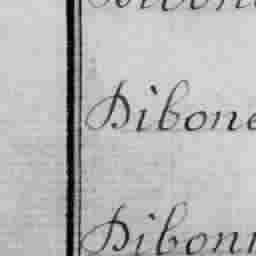 Dibone
Dibonn